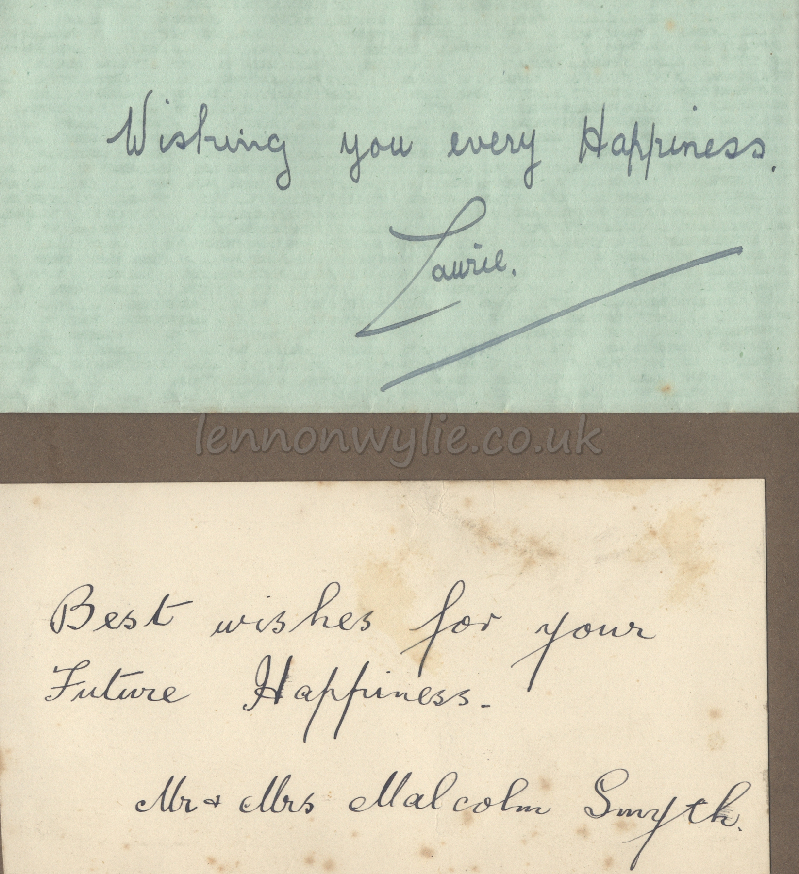 Wishing you every Happiness.
Laurie.
lennonwylie.co.uk
Best wishes for your
Future Happiness.
Mr & Mrs Malcolm Smyth.